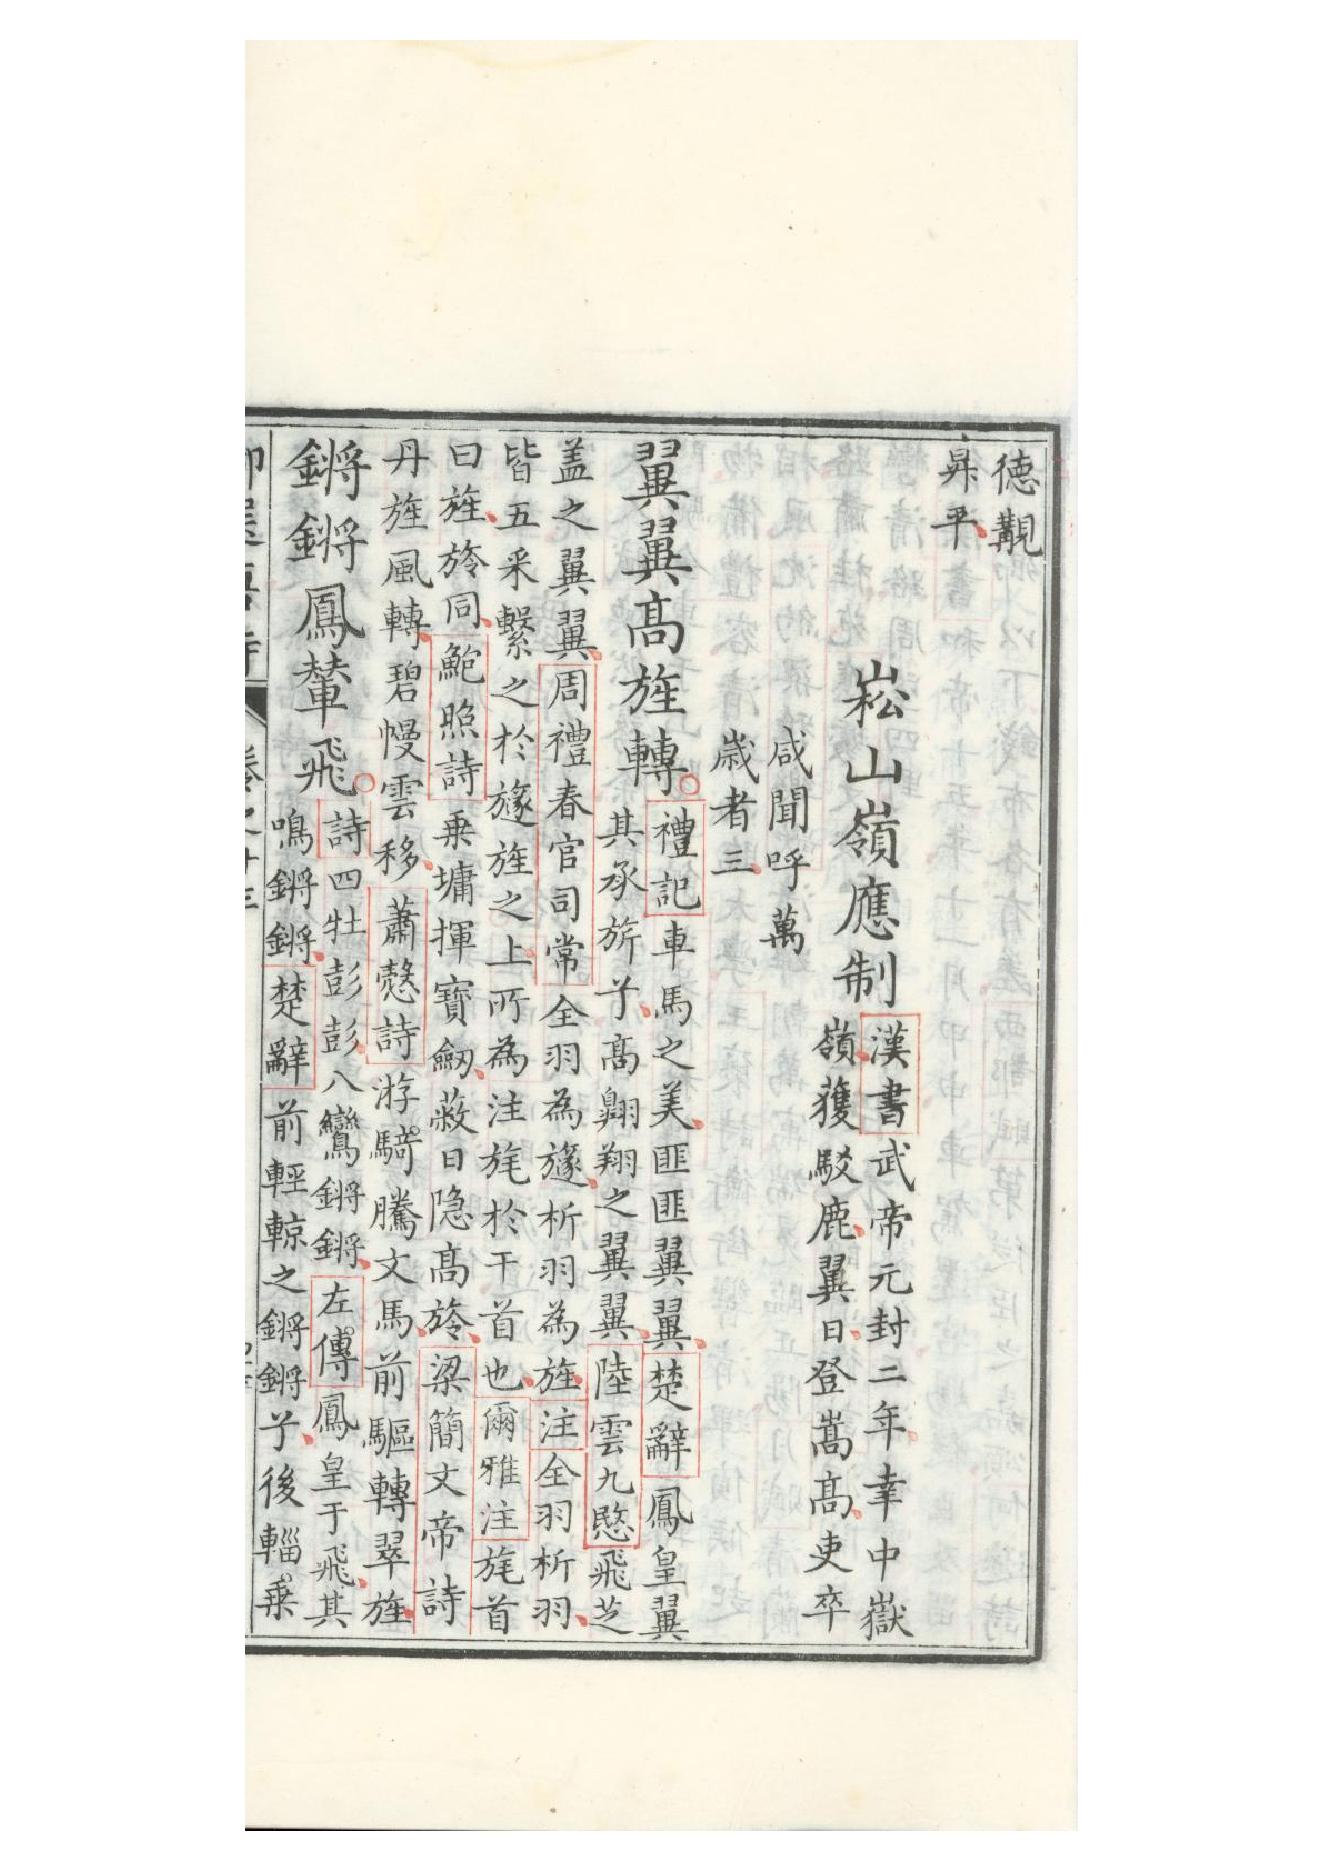 德觀
昇平
崧山嶺應制
漢書武帝元封二年幸中嶽
嶺獲駁鹿翼日登嵩高吏卒
咸聞呼萬
歳者三
翼翼高旌轉
禮記車馬之美匪匪翼翼楚辭鳳皇翼
其承旂兮高翺翔之翼翼陸雲九愍飛芝
盖之翼翼周禮春官司常全羽為旞析羽為旌注全羽析羽
皆五采繫之於旞旌之上所為注旄於干首也爾雅注旄首
曰旌旍同鮑照詩乗墉揮寶劒蔽日隐高旍梁簡文帝詩
丹旌風轉碧幔雲移蕭慤詩游騎騰文馬前驅轉翠旌
鏘鏘鳳輦飛
詩四牡彭彭八鸞鏘鏘左傳鳳皇于飛其
鳴鏘鏘楚辭前輕輬之鏘鏘兮後輜乗